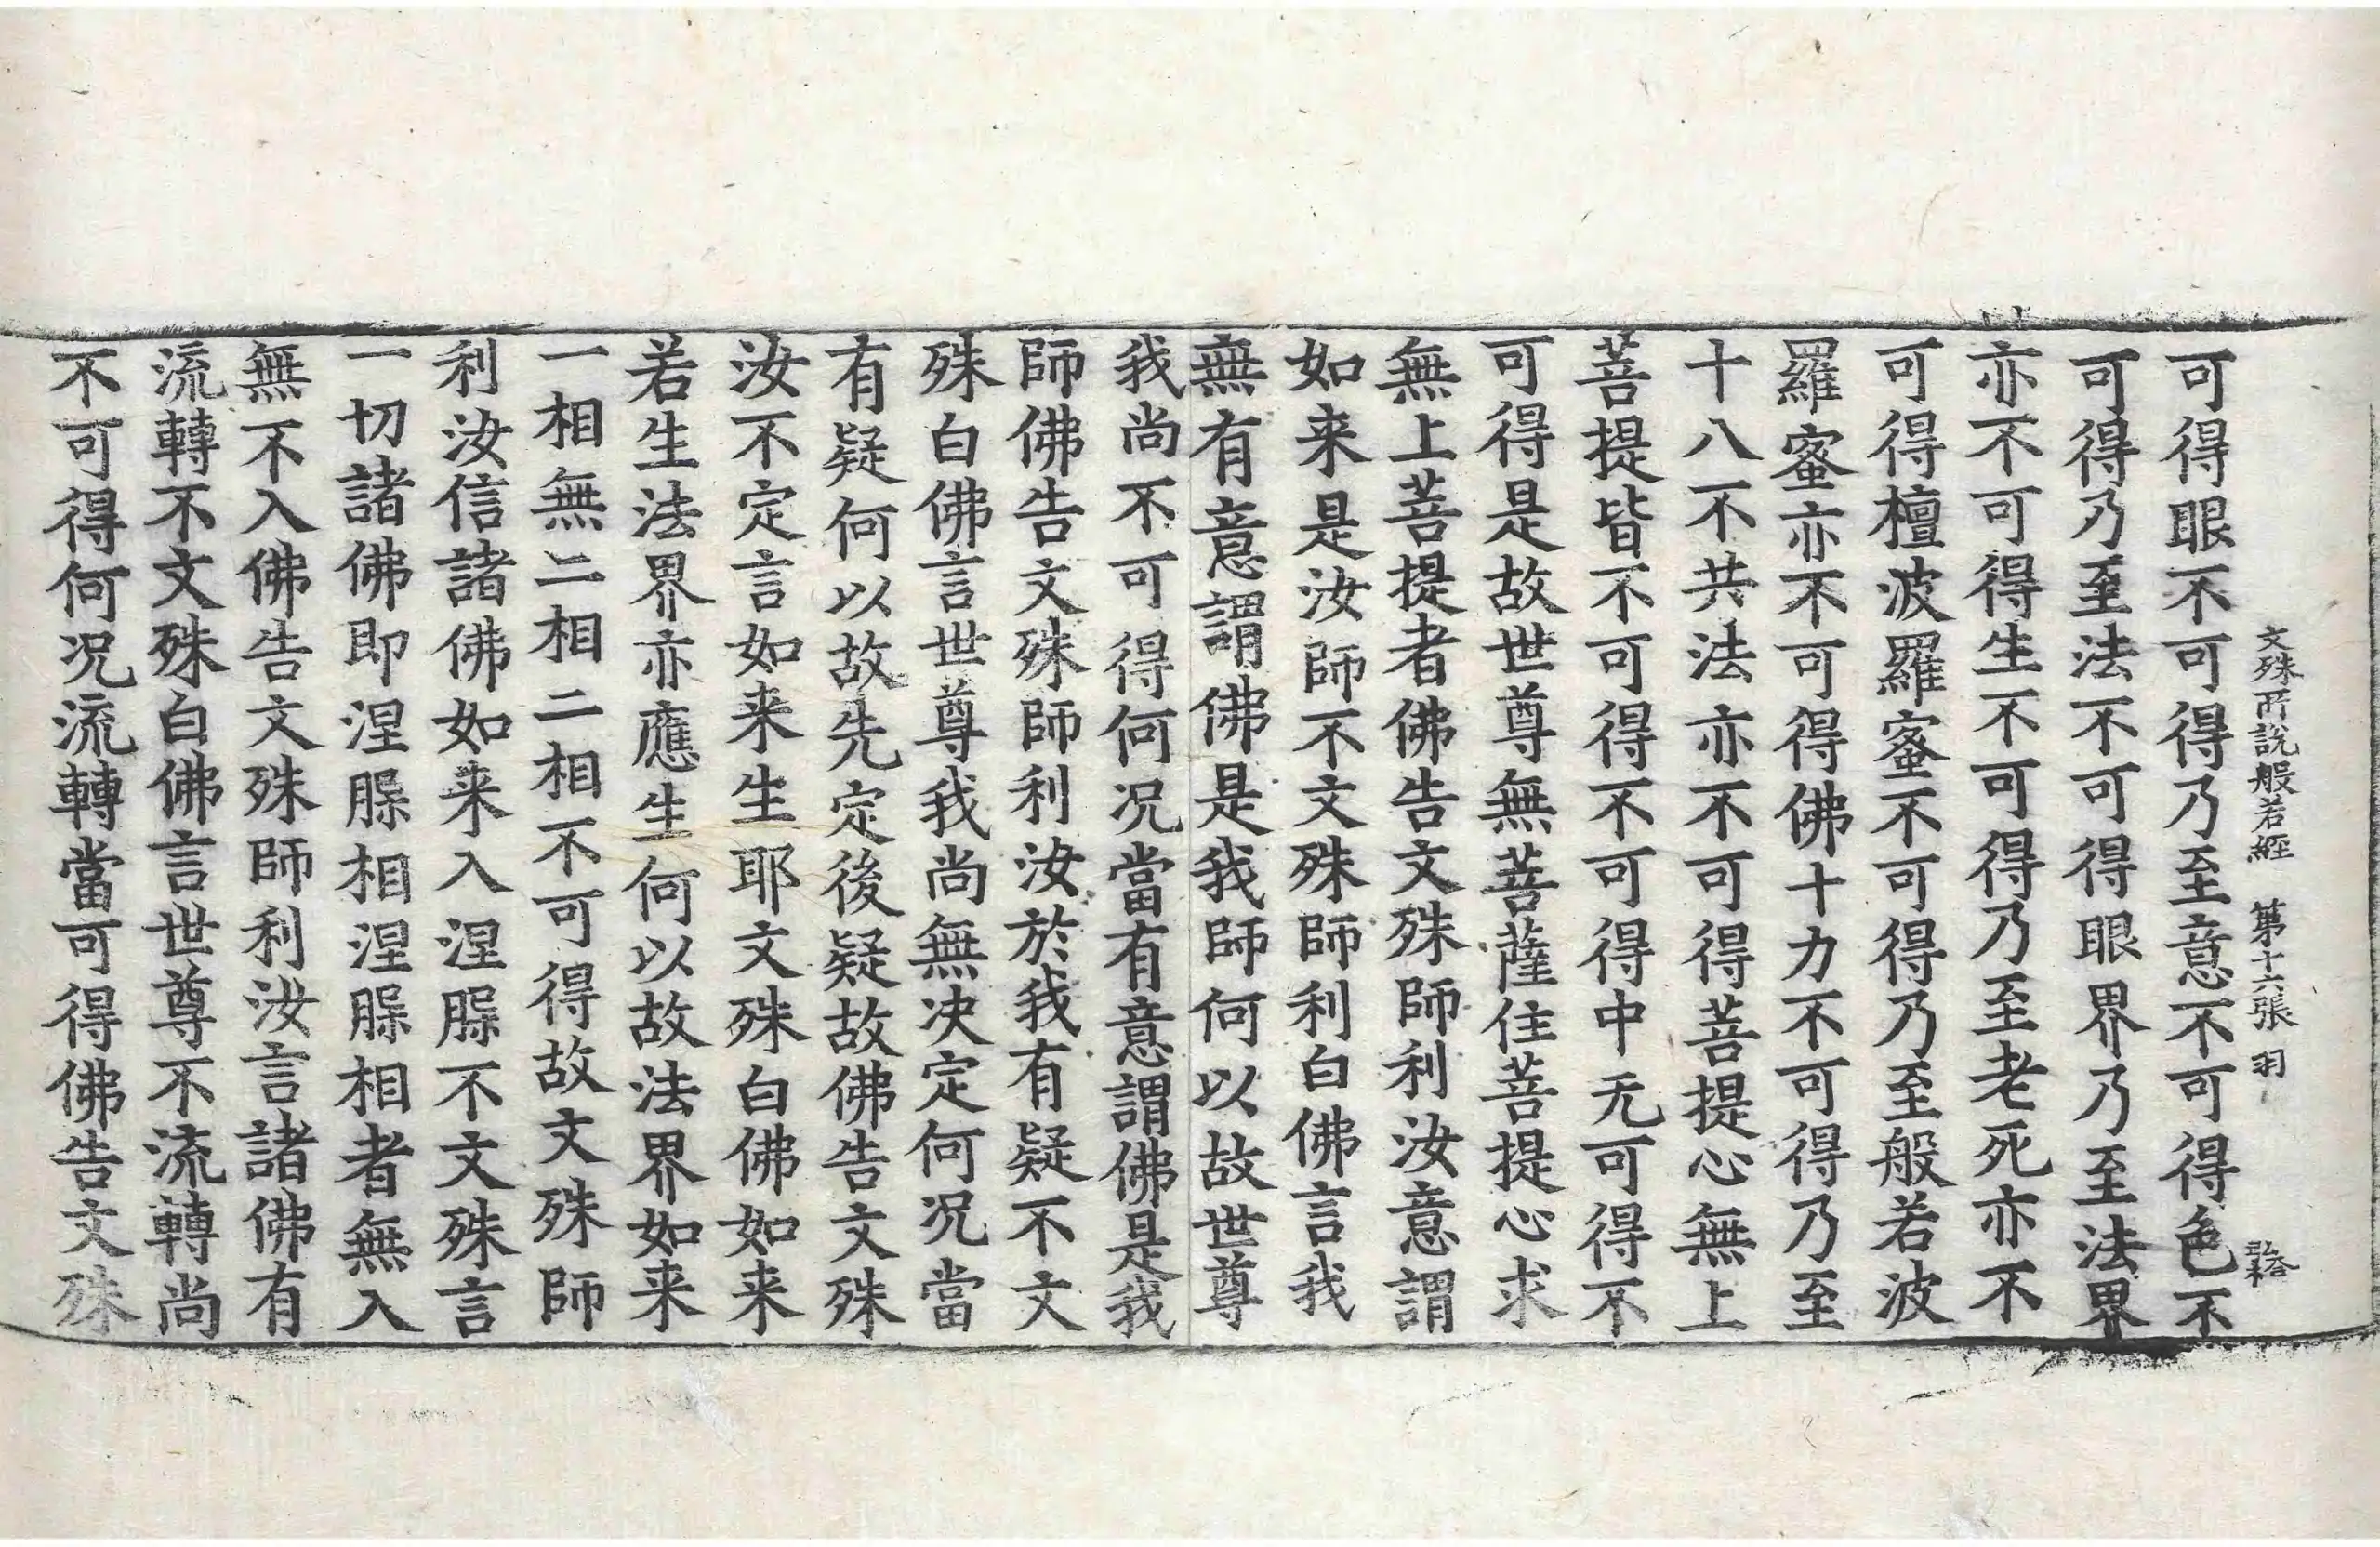 文殊所說般若經　第十六張　羽
可得眼不可得乃至意不可得色不
可得乃至法不可得眼界乃至法界
亦不可得生不可得乃至老死亦不
可得檀波羅蜜不可得乃至般若波
羅蜜亦不可得佛十力不可得乃至
十八不共法亦不可得菩提心無上
菩提皆不可得不可得中无可得不
可得是故世尊無菩薩住菩提心求
無上菩提者佛告文殊師利汝意謂
如来是汝師不文殊師利白佛言我
無有意謂佛是我師何以故世尊
我尚不可得何况當有意謂佛是我
師佛告文殊師利汝於我有疑不文
殊白佛言世尊我尚無决定何况當
有疑何以故先定後疑故佛告文殊
汝不定言如来生耶文殊白佛如来
若生法界亦應生何以故法界如来
一相無二相二相不可得故文殊師
利汝信諸佛如来入涅槃不文殊言
一切諸佛即涅槃相涅槃相者無入
無不入佛告文殊師利汝言諸佛有
流轉不文殊白佛言世尊不流轉尚
不可得何况流轉當可得佛告文殊